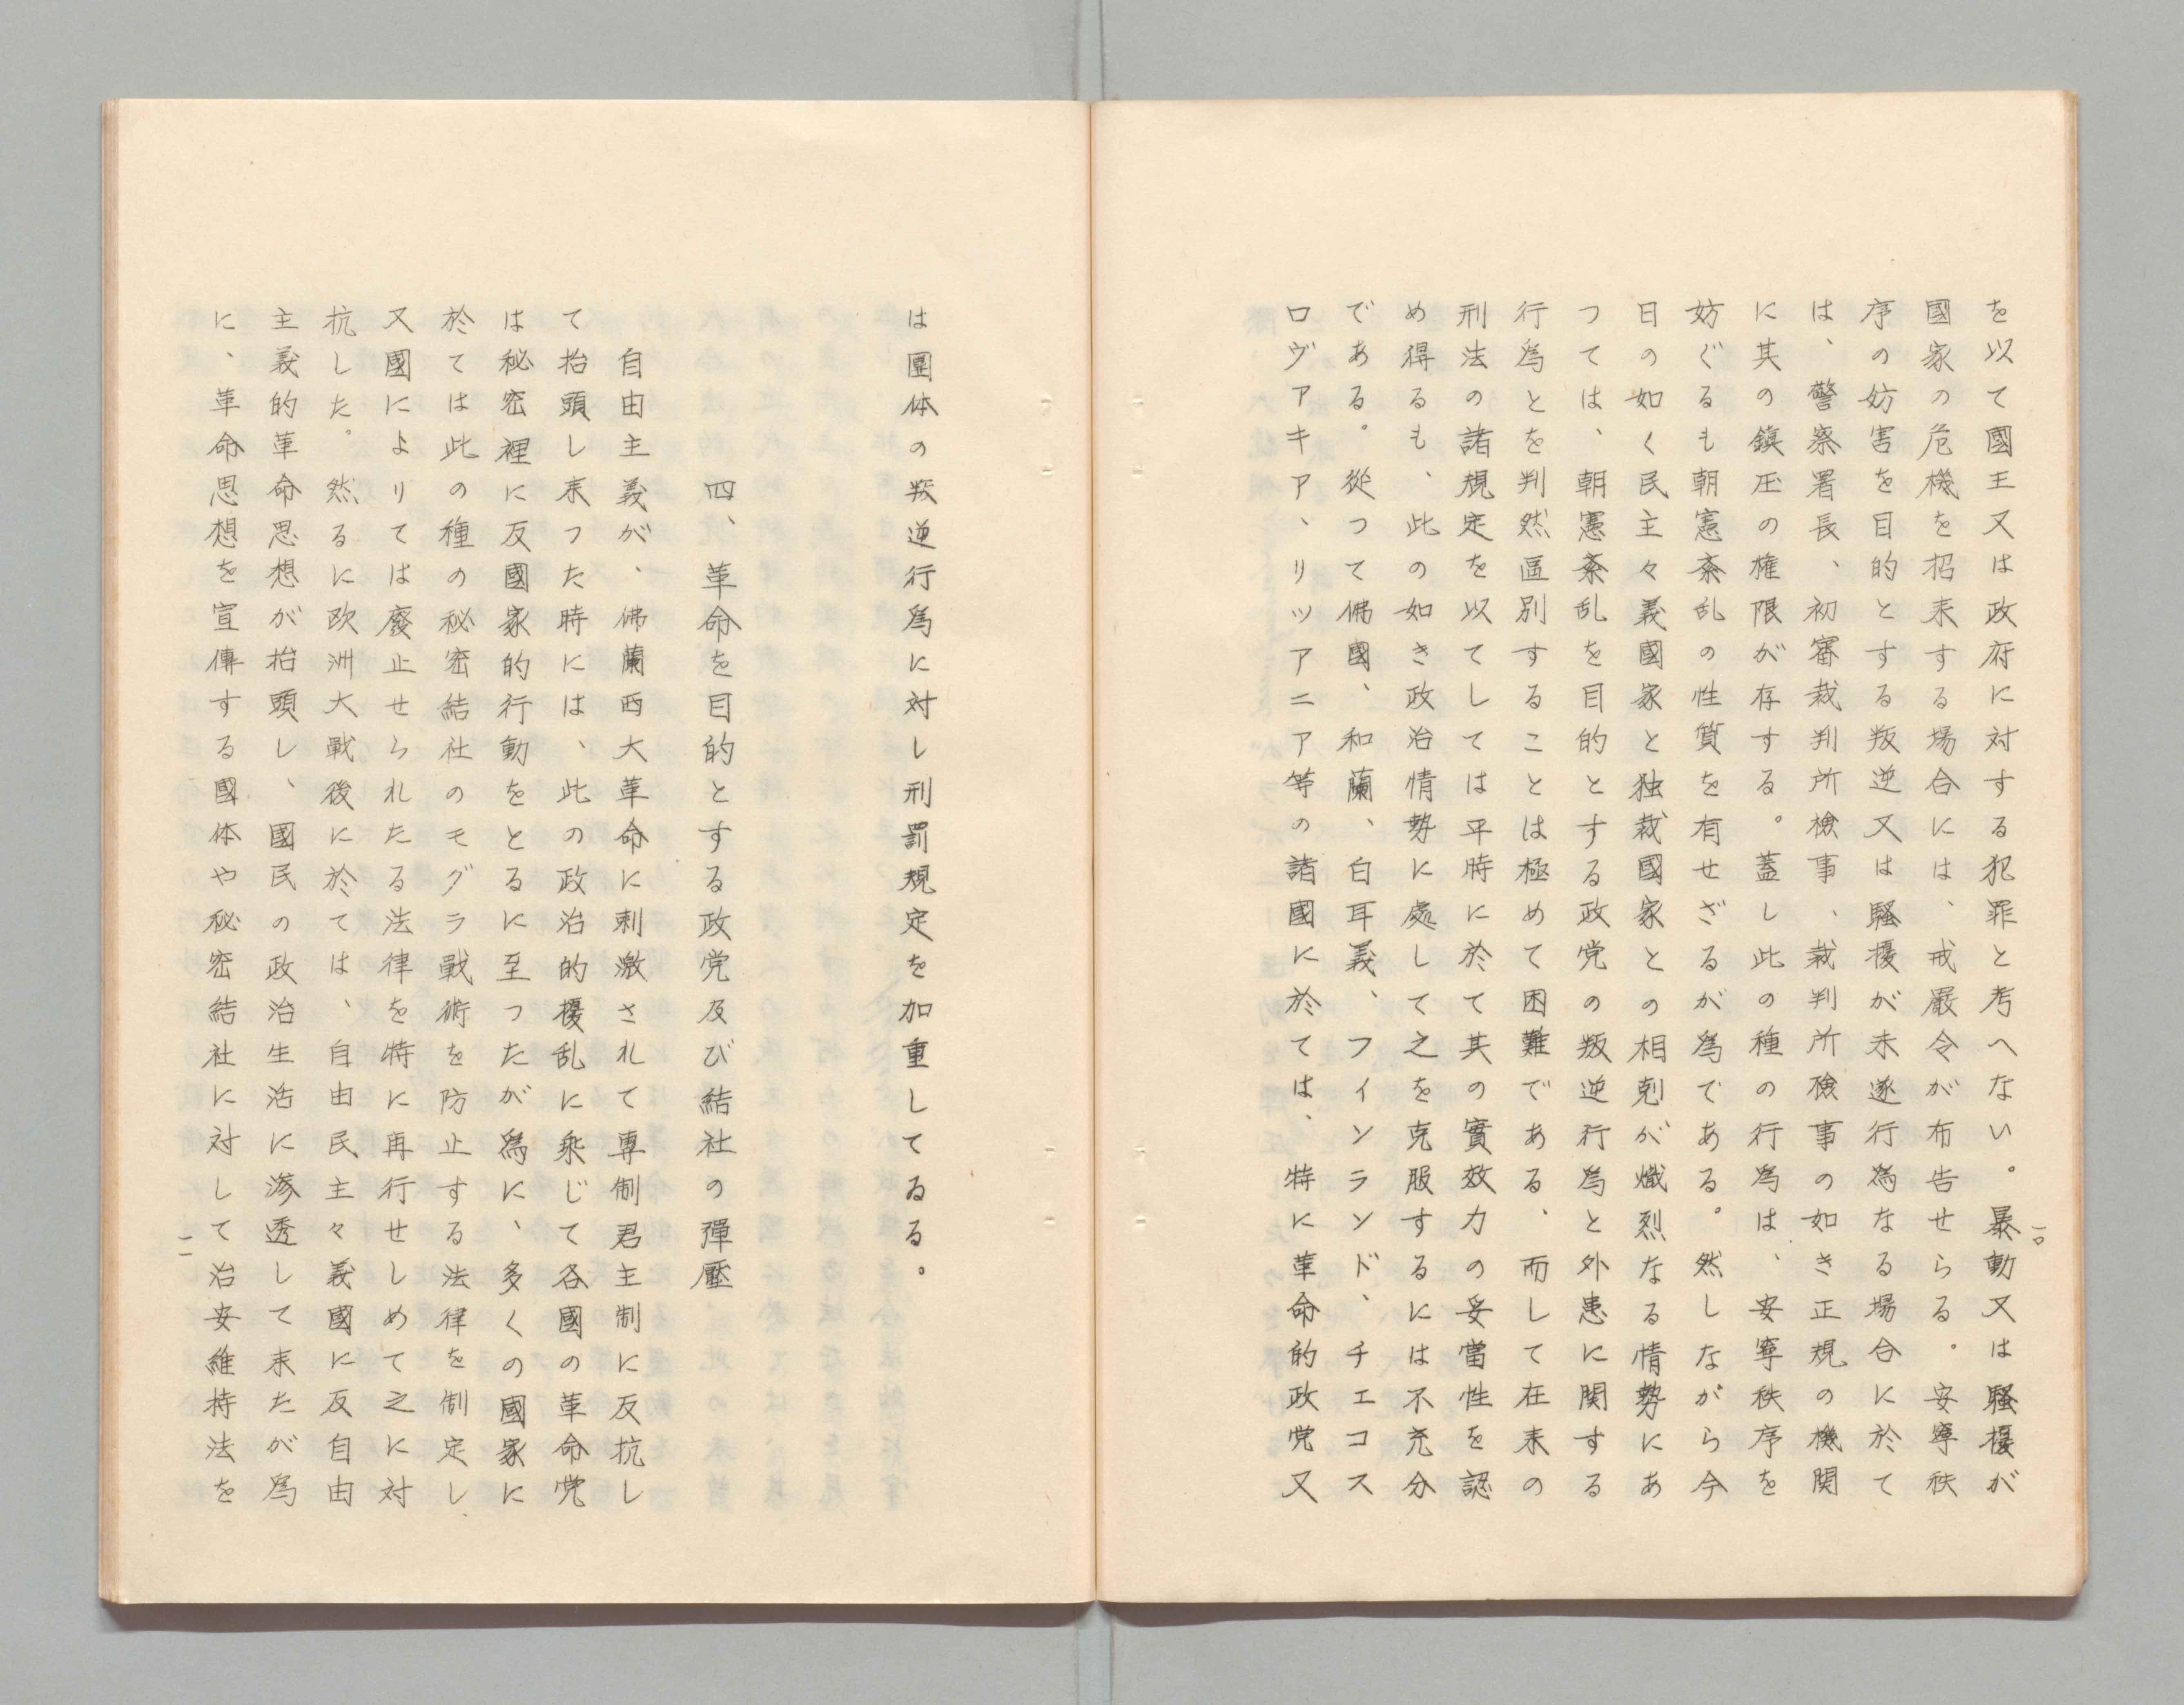 を以て國王又は政府に対する犯罪と考へない。暴動又は騷擾が
國家の危機を招来する場合には、戒嚴令が布告せらる。安寧秩
序の妨害を目的とする叛逆又は騷擾が未遂行為なる場合に於て
は、警察署長、初審裁判所檢事、裁判所檢事の如き正規の機関
に其の鎮圧の権限が存する。蓋し此の種の行為は、安寧秩序を
妨ぐるも朝憲紊乱の性質を有せざるが為である。然しながら今
日の如く民主々義國家と独裁國家との相剋が熾烈なる情勢にあ
つては、朝憲紊乱を目的とする政党の叛逆行為と外患に関する
行為とを判然區別することは極めて困難である、而して在来の
刑法の諸規定を以てしては平時に於て其の實效力の妥當性を認
め得るも、此の如き政治情勢に處して之を克服するには不充分
である。從つて佛國、和蘭、白耳義、フインランド、チエコス
ロヴアキア、リツアニア等の諸國に於ては、特に革命的政党又
一〇
は團体の叛逆行為に対し刑罰規定を加重してゐる。
四、革命を目的とする政党及び結社の彈壓
自由主義が、佛蘭西大革命に刺激されて專制君主制に反抗し
て抬頭し来つた時には、此の政治的擾乱に乘じて各國の革命党
は秘密裡に反國家的行動をとるに至つたが為に、多くの國家に
於ては此の種の秘密結社のモグラ戰術を防止する法律を制定し、
又國によりては廢止せられたる法律を特に再行せしめて之に対
抗した。然るに欧洲大戰後に於ては、自由民主々義國に反自由
主義的革命思想が抬頭し、國民の政治生活に滲透して来たが為
に、革命思想を宣傳する國体や秘密結社に対して治安維持法を
一一